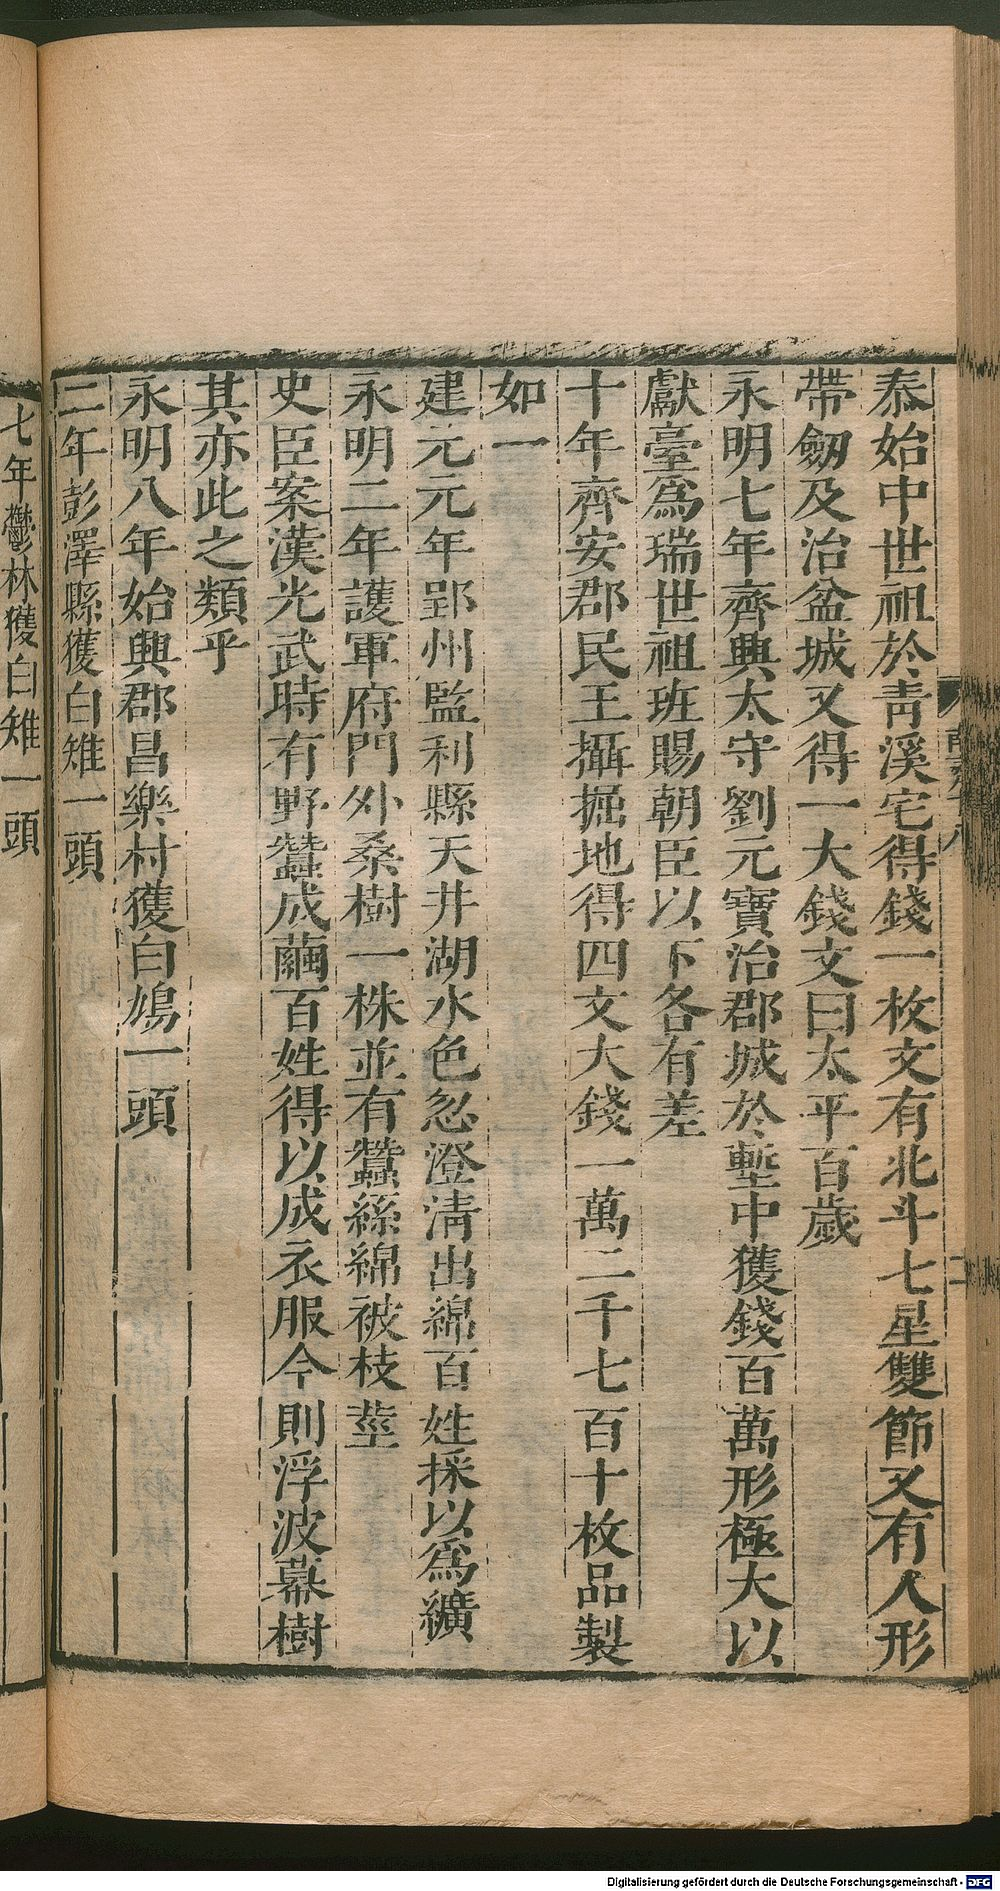 泰始中世祖於靑溪宅得錢一枚文有北斗七星雙節又有人形
帶劒及治盆城又得一大錢文曰太平百歲
永明七年齊興太守劉元寶治郡城於壍中獲錢百萬形極大以
獻臺爲瑞世祖班賜朝臣以下各有差
十年齊安郡民王攝掘地得四文大錢一萬二千七百十枚品製
如一
建元元年郢州監利縣天井湖水色忽澄淸出綿百姓採以爲纊
永明二年護軍府門外桑樹一株並有蠶絲綿被枝莖
史臣案漢光武時有野蠶成繭百姓得以成衣服今則浮波幕樹
其亦此之類乎
永明八年始興郡昌樂村獲白鳩一頭
二年彭澤縣獲白雉一頭
七年鬱林獲白雉一頭
Digitalisierung gefördert durch die Deutsche Forschungsgemeinschaft - DFG